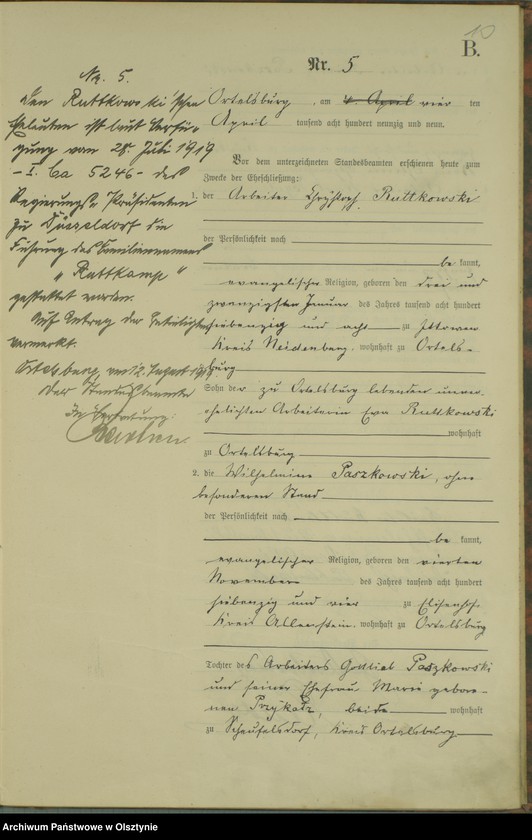 10
B.
Nr. 5
No. 5.
Den Ruttkowski'schen
Eheleuten ist laut Verfü-
gung vom 28. Juli 1919
- I. Ca 5246 - des
Regierungs-Präsidenten
zu Düsseldorf die
Führung des Familiennamens
"Ruttkamp"
gestattet worden.
Auf Antrag der Beteiligten
vermerkt.
Ortelsburg, am 12. August 1919
Der Standesbeamte
In Vertretung:
Ortelsburg, am 4. April vier ten
April tausend acht hundert neunzig und neun.
Vor dem unterzeichneten Standesbeamten erschienen heute zum
Zwecke der Eheschließung:
1. der Arbeiter Christoph Ruttkowski
der Persönlichkeit nach
be kannt,
evangelischer Religion, geboren den drei und
zwanzigsten Januar des Jahres tausend acht hundert
siebenzig und acht zu Ittowen
Kreis Neidenburg, wohnhaft zu Ortels-
burg
Sohn der zu Ortelsburg lebenden unver-
ehelichten Arbeiterin Eva Ruttkowski
wohnhaft
zu Ortelsburg
2. die Wilhelmine Paszkowski, ohne
besonderen Stand
der Persönlichkeit nach
be kannt,
evangelischer Religion, geboren den vierten
November des Jahres tausend acht hundert
siebenzig und vier zu Elisenhof
Kreis Allenstein, wohnhaft zu Ortelsburg
Tochter des Arbeiters Gottlieb Paszkowski
und seiner Ehefrau Marie gebore-
nen Przykatz, beide wohnhaft
zu Scheufelsdorf, Kreis Ortelsburg
Archiwum Państwowe w Olsztynie